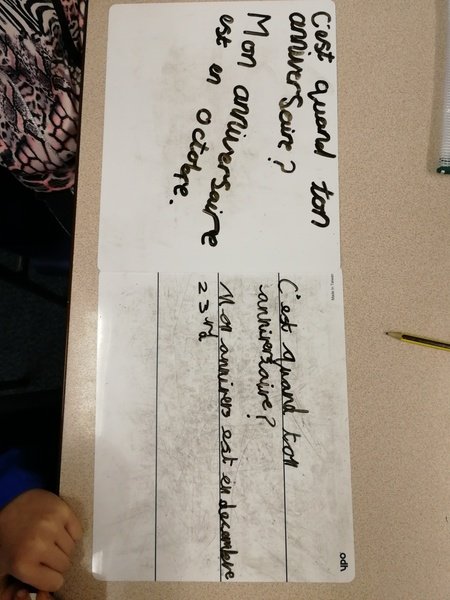 C'est quand ton
anniversaire?
Mon anniversaire
est en octobre.
Made in Taiwan
C'est quand ton
anniversaire?
Mon annivers est en decembre
23rd
odh